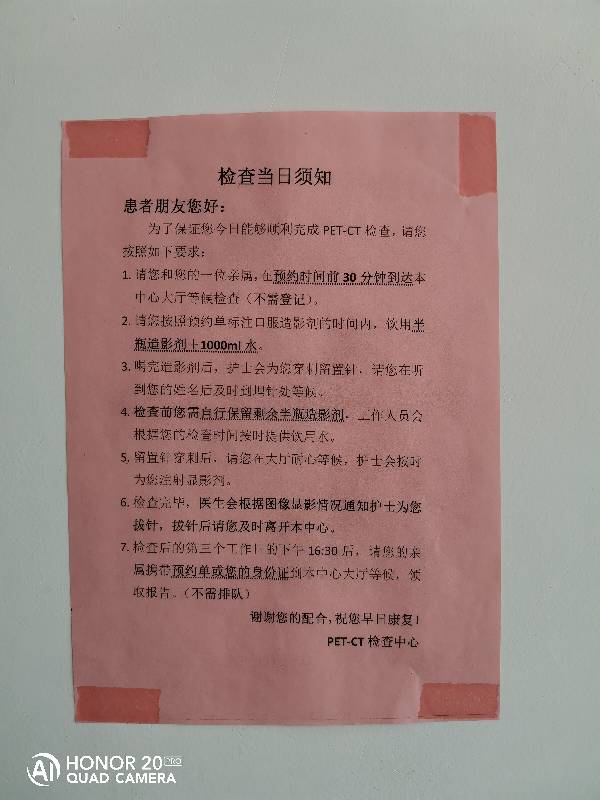 检查当日须知
患者朋友您好：
为了保证您今日能够顺利完成 PET-CT 检查，请您
按照如下要求：
1. 请您和您的一位亲属，在预约时间前 30 分钟到达本
中心大厅等候检查（不需登记）。
2. 请您按照预约单标注口服造影剂的时间内，饮用半
瓶造影剂＋1000ml 水。
3. 喝完造影剂后，护士会为您穿刺留置针，请您在听
到您的姓名后及时到埋针处等候。
4. 检查前您需自行保留剩余半瓶造影剂，工作人员会
根据您的检查时间按时提供饮用水。
5. 留置针穿刺后，请您在大厅耐心等候，护士会按时
为您注射显影剂。
6. 检查完毕，医生会根据图像显影情况通知护士为您
拔针，拔针后请您及时离开本中心。
7. 检查后的第三个工作日的下午 16:30 后，请您的亲
属携带预约单或您的身份证到本中心大厅等候，领
取报告。（不需排队）
谢谢您的配合，祝您早日康复！
PET-CT 检查中心
HONOR 20 PRO
QUAD CAMERA